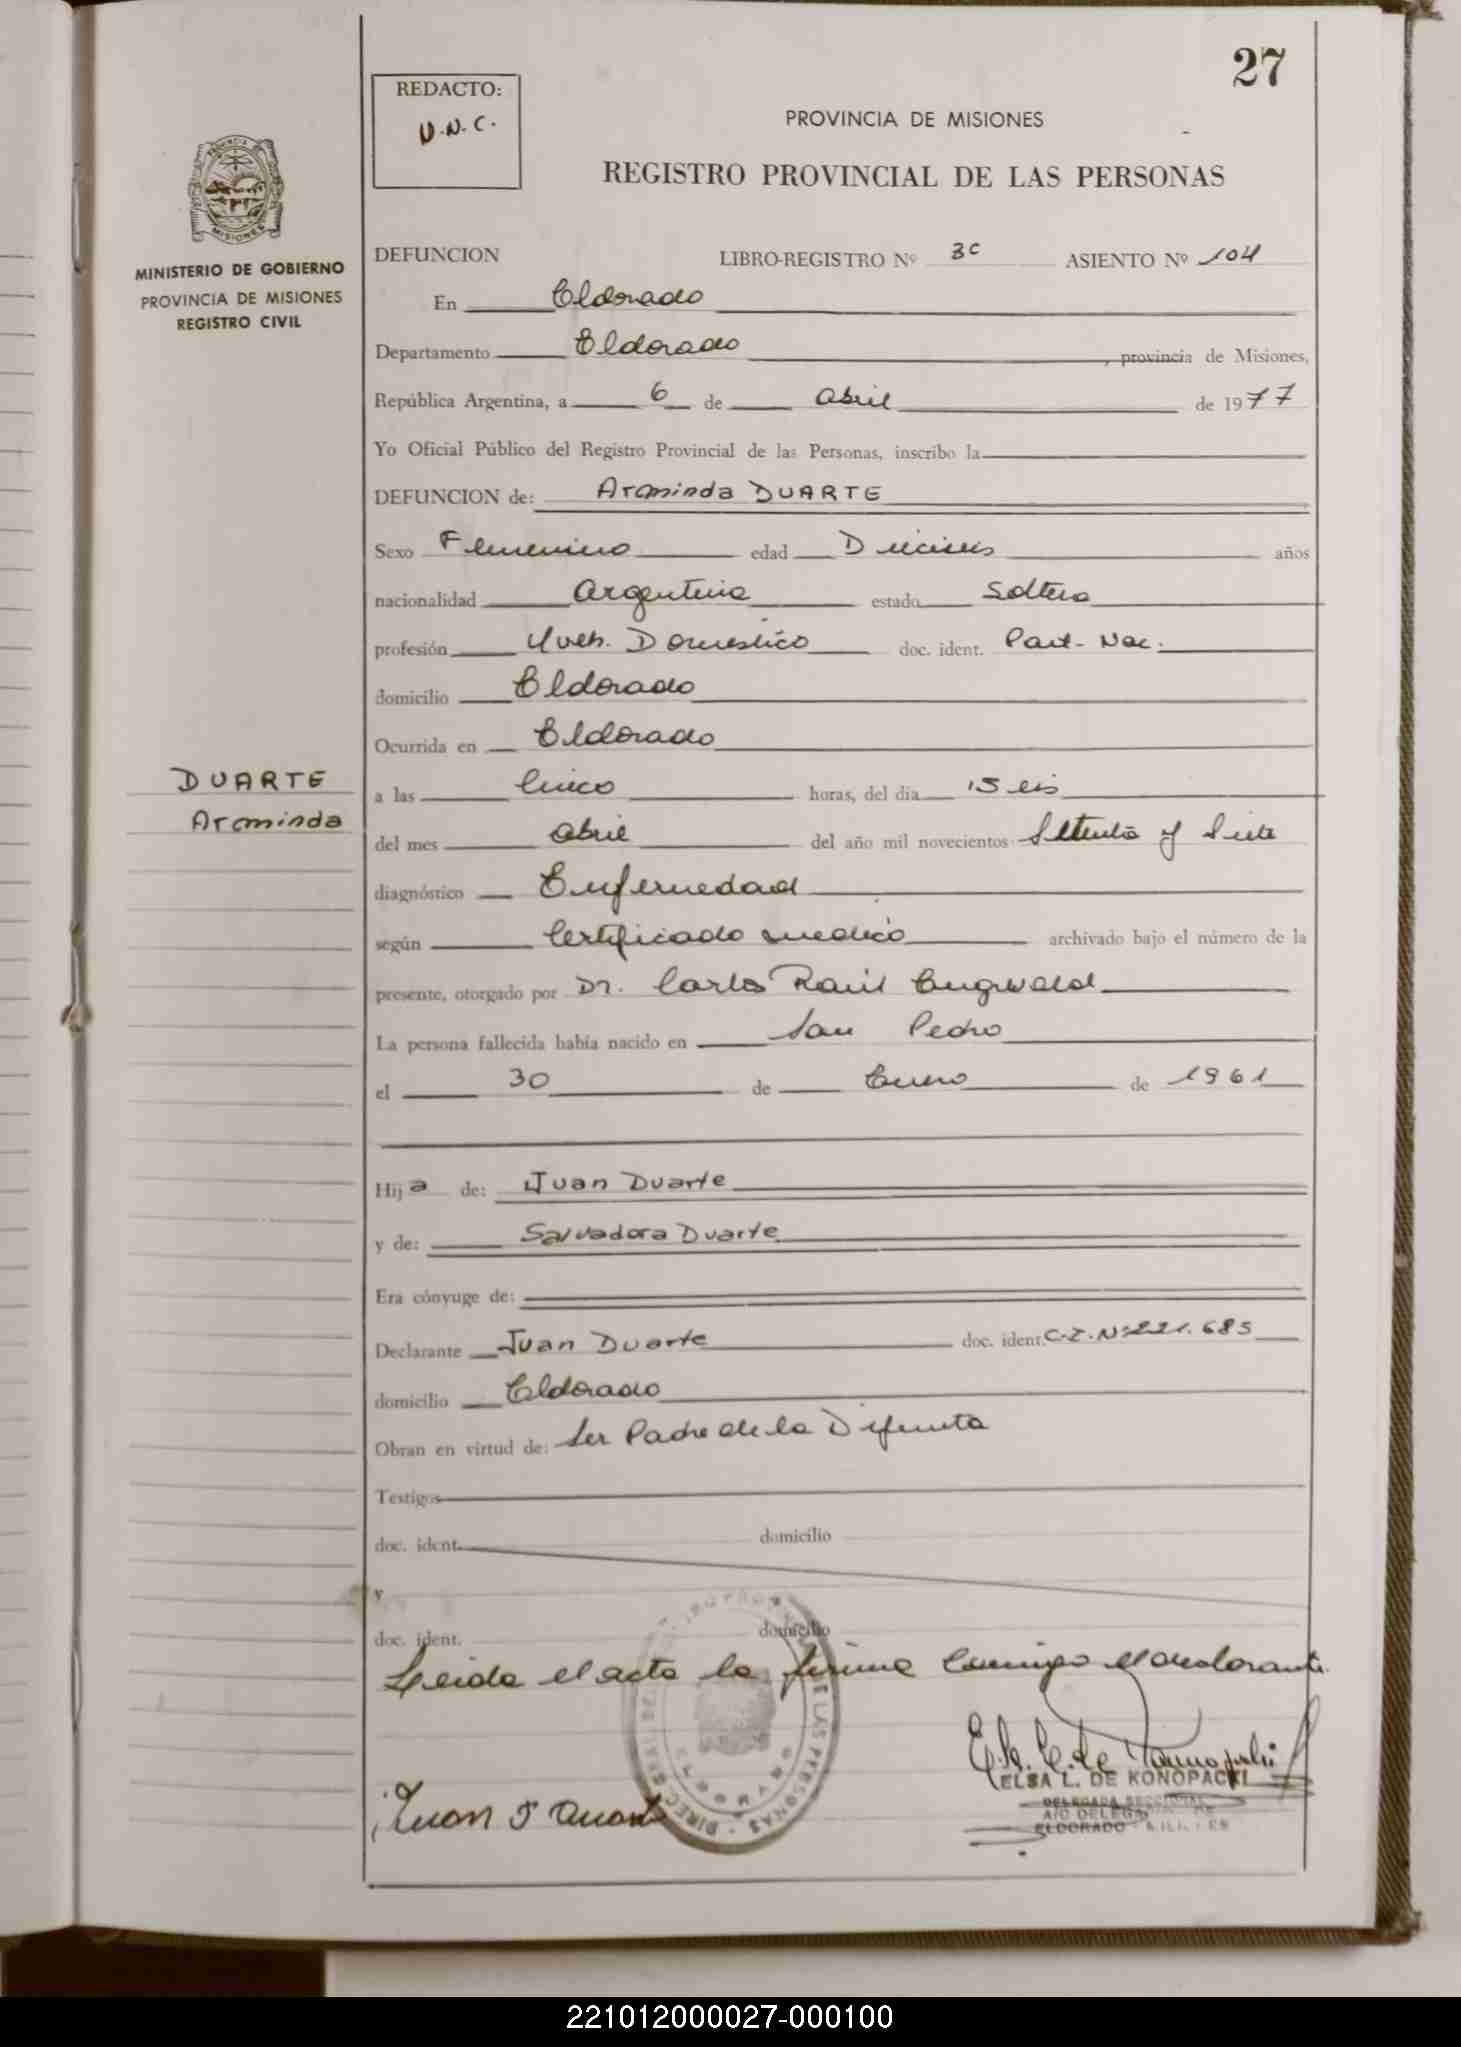 27
REDACTO:
V.N.C.
PROVINCIA DE MISIONES
REGISTRO PROVINCIAL DE LAS PERSONAS
MINISTERIO DE GOBIERNO
PROVINCIA DE MISIONES
REGISTRO CIVIL
DEFUNCION LIBRO-REGISTRO Nº 3c ASIENTO Nº 104
En Eldorado
Departamento Eldorado, provincia de Misiones,
República Argentina, a 6 de abril de 1977
Yo Oficial Público del Registro Provincial de las Personas, inscribo la
DEFUNCION de: Arminda DUARTE
Sexo Femenino edad Dieciseis años
nacionalidad argentina estado Soltera
profesión Queh. Domestico doc. ident. Part. Nac.
domicilio Eldorado
Ocurrida en Eldorado
DUARTE
Arminda
a las Cinco horas, del dia Seis
del mes abril del año mil novecientos Setenta y Siete
diagnóstico Enfermedad
según Certificado medico archivado bajo el número de la
presente, otorgado por Dr. Carlos Raúl
La persona fallecida había nacido en San Pedro
el 30 de Enero de 1961
Hija de: Juan Duarte
y de: Salvadora Duarte
Era cónyuge de:
Declarante Juan Duarte doc. ident. C.I. Nº 221.685
domicilio Eldorado
Obran en virtud de: Ser Padre de la Difunta
Testigos
doc. ident. domicilio
y
doc. ident. domicilio
Leida el acta la firma Conmigo el declarante.
ELSA L. DE KONOPACKI
DELEGADA SECCIONAL
A/C DELEG
ELDORADO
Juan Duarte
DE LAS PERSONAS
221012000027-000100